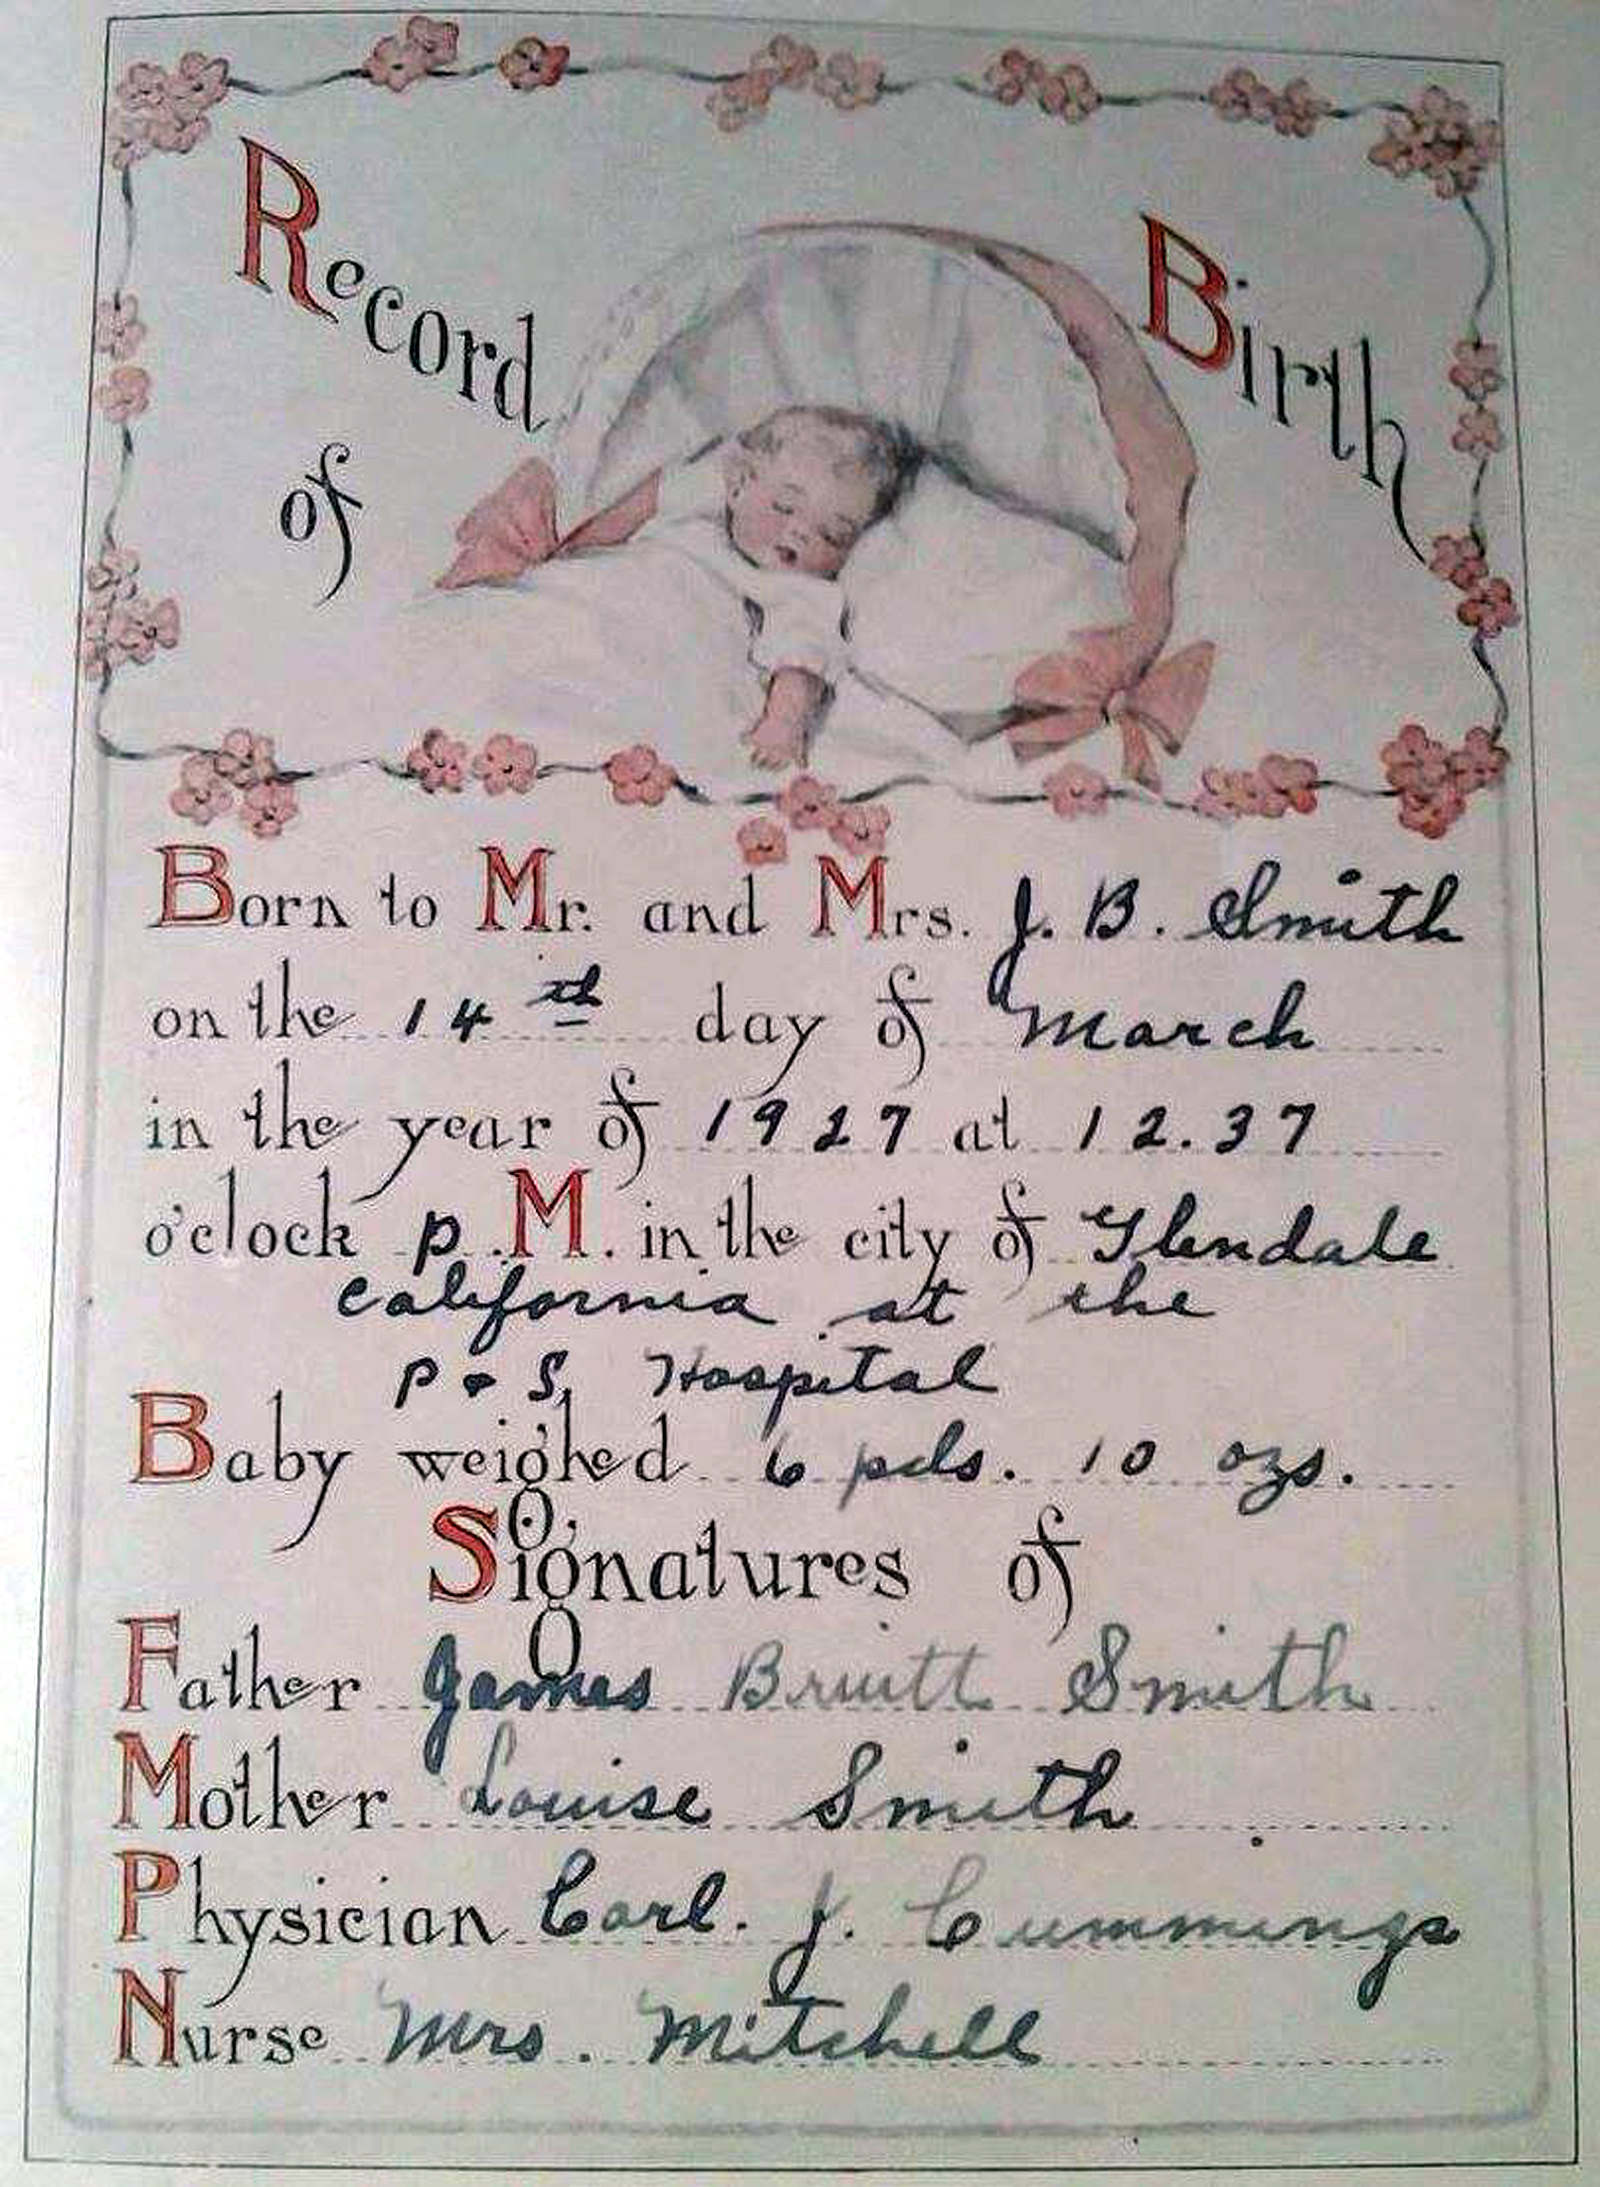 Record of Birth
Born to Mr. and Mrs. J. B. Smith
on the 14th day of March
in the year of 1927 at 12.37
o'clock p.M. in the city of Glendale
California at the
P & S. Hospital
Baby weighed 6 pds. 10 ozs.
Signatures of
Father James Bruitt Smith
Mother Louise Smith
Physician Carl. J. Cummings
Nurse Mrs. Mitchell